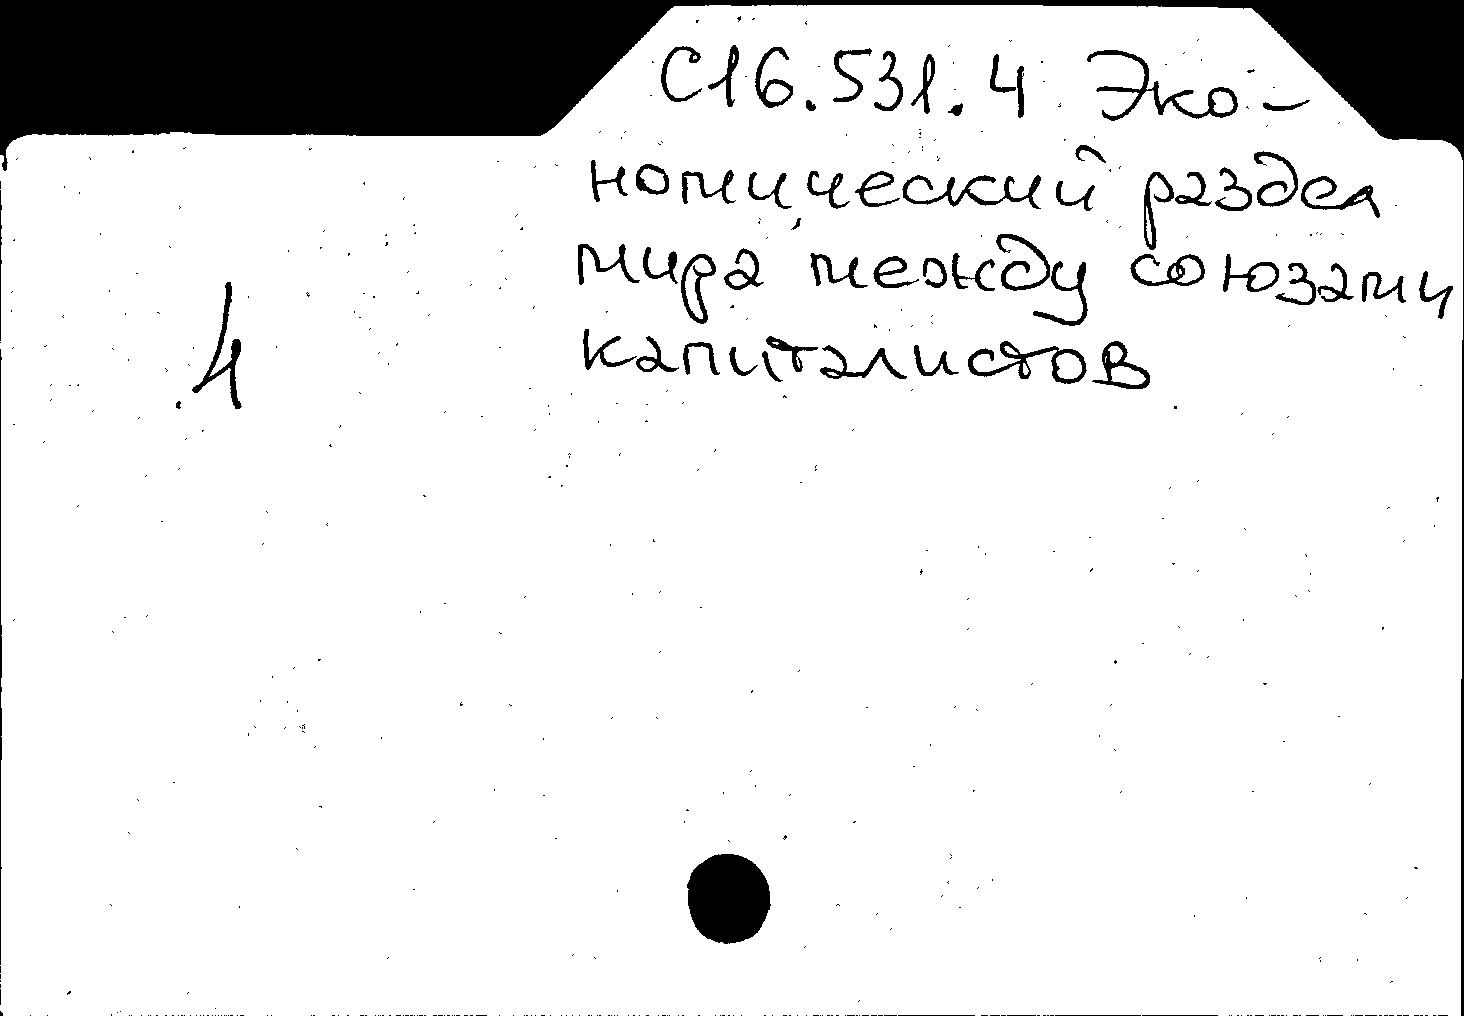 С16.531.4 Эко-
номический раздел
мира между союзами
капиталистов
4